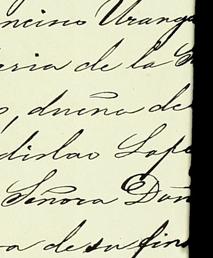 ncisco Uranga
eria de la
s, dueña de
dislao Lope
Señora Doñ
ra de su fin